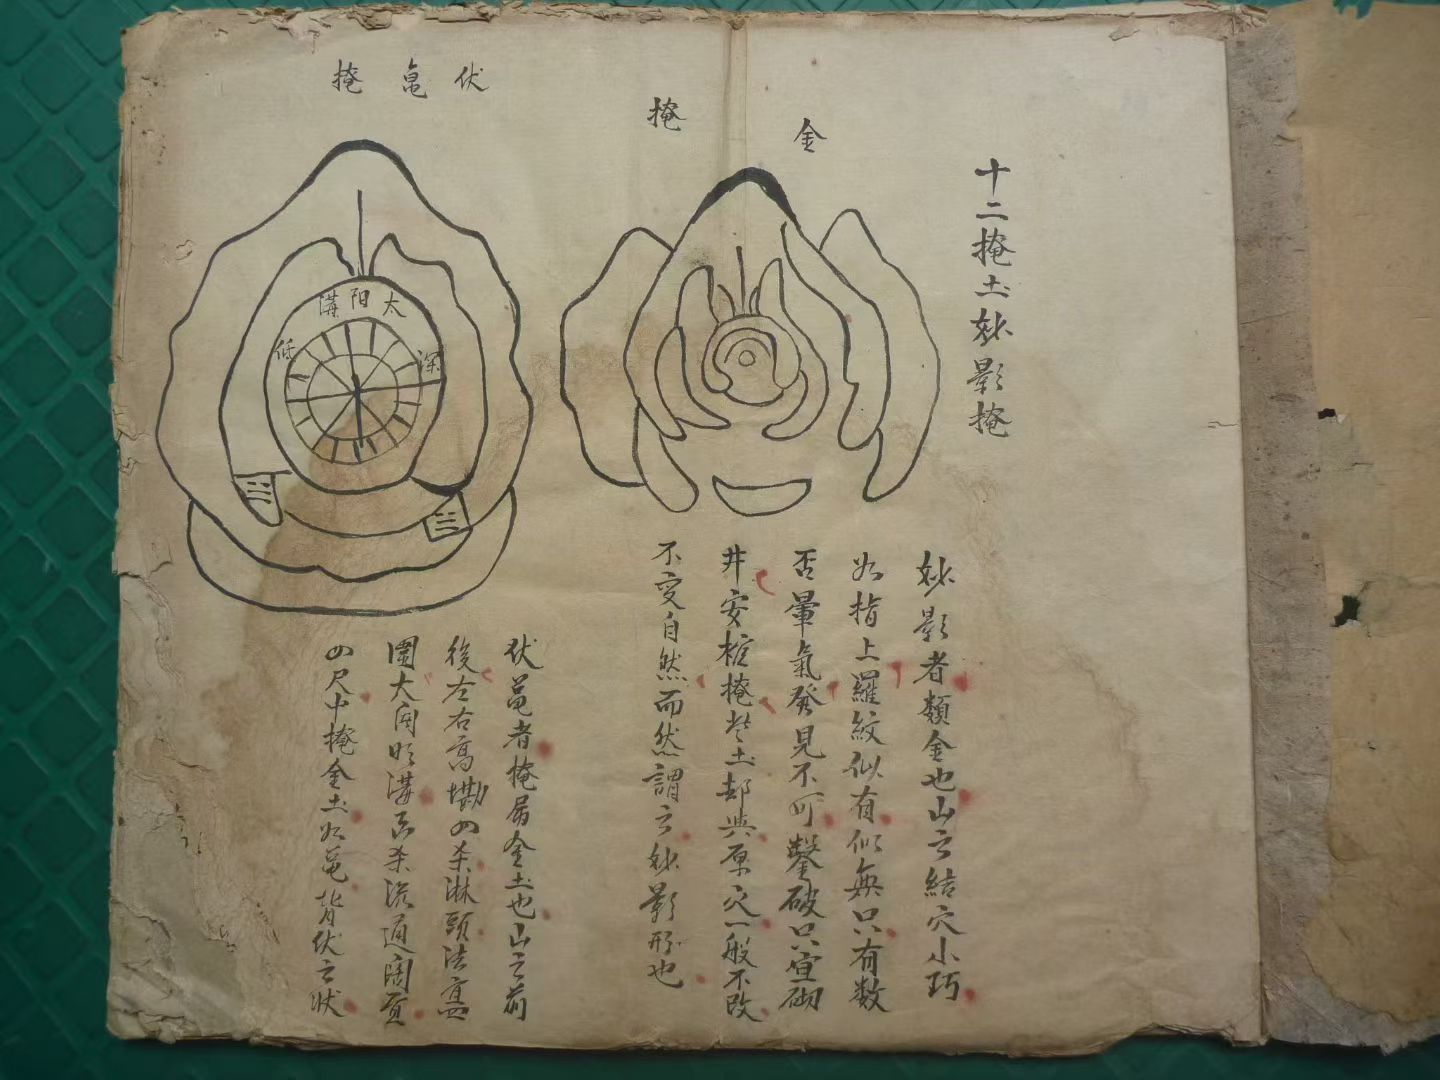 十二掩土妙影掩
金
掩
妙影者類金也山之結穴小巧
如指上羅紋似有似無只有数
否暈氣發見不可鑿破只宜砌
井安棺掩土却與原穴一般不改
不变自然而然謂之妙影形也
伏龟掩
太阳溝
深
低
伏黾者掩屬金土也山之前
後左右高墈四杀淋頭法宜
大闊明溝杀流通闊
四尺中掩金土如黾背伏之状